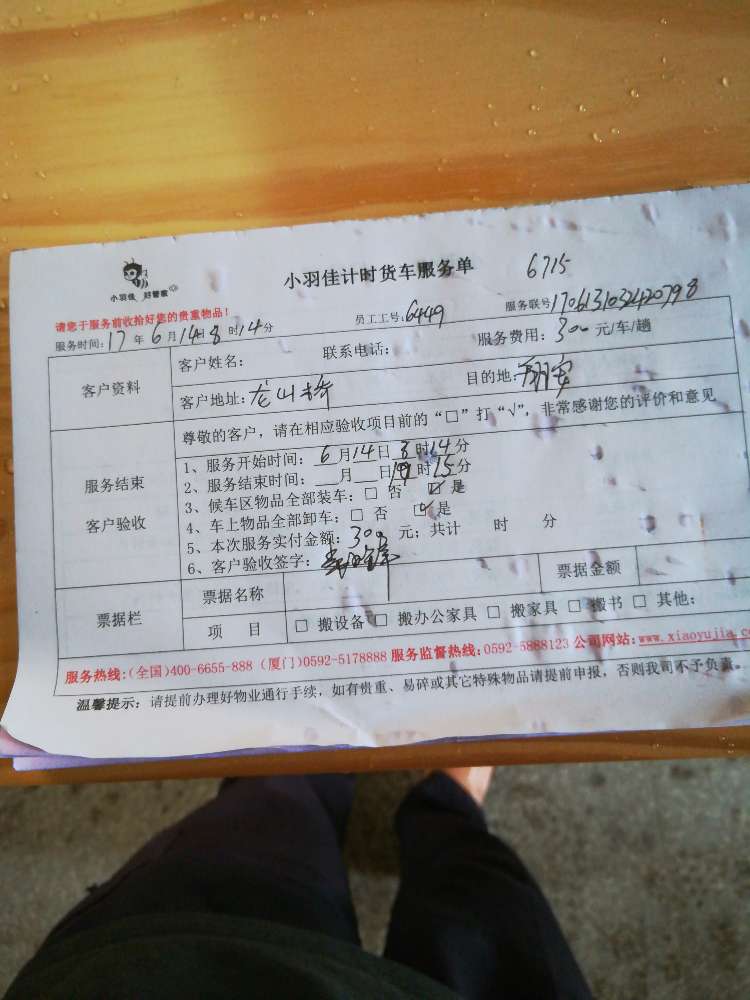 小羽佳 好管家
小羽佳计时货车服务单 6715
请您于服务前收拾好您的贵重物品!
服务时间:17年6月14日8时14分 员工工号:6449 服务联号
客户资料
客户姓名: 联系电话: 服务费用:300元/车/趟
客户地址:龙山桥 目的地:翔安
服务结束
客户验收
尊敬的客户,请在相应验收项目前的“□”打“√”,非常感谢您的评价和意见
1、服务开始时间:6月14日8时14分
2、服务结束时间:__月__日 时15分
3、候车区物品全部装车:□ 否 ☑ 是
4、车上物品全部卸车:□ 否 ☑ 是
5、本次服务实付金额:300元;共计 时 分
6、客户验收签字:
票据栏
票据名称 票据金额
项 目 □ 搬设备 □ 搬办公家具 □ 搬家具 □ 搬书 □ 其他:
服务热线:(全国)400-6655-888 (厦门)0592-5178888 服务监督热线:0592-5888123 公司网站:www.xiaoyujia.co
温馨提示:请提前办理好物业通行手续,如有贵重、易碎或其它特殊物品请提前申报,否则我司不予负责。